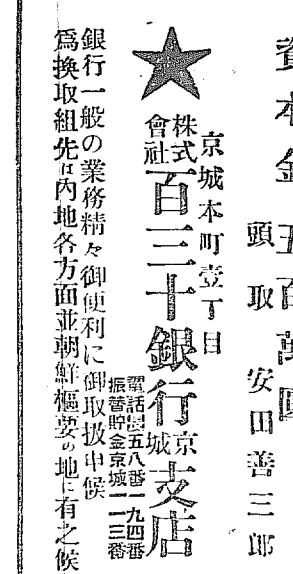 資本金五百萬圓
頭取 安田善三郎
京城本町壹丁目
株式會社百三十銀行京城支店
電話長五八番一九四番
振替貯金京城一一三番
銀行一般の業務精々御便利に御取扱申候
爲換取組先は內地各方面並朝鮮樞要の地に有之候